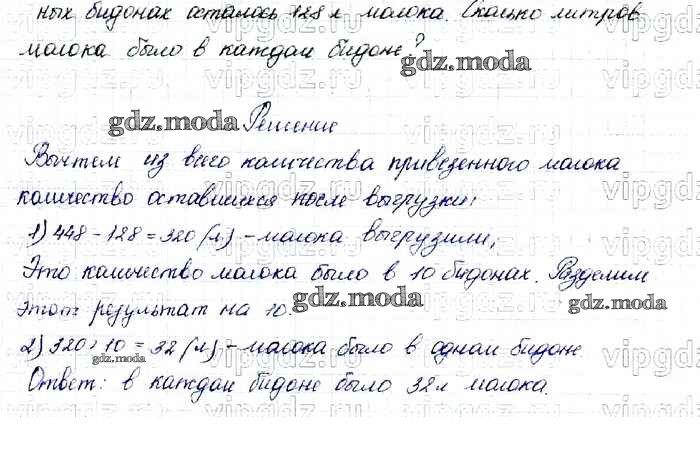 ных бидонах осталось 128 л молока. Сколько литров
молока было в каждом бидоне?
gdz.moda
gdz.moda Решение
Вычтем из всего количества привезенного молока
количество оставшихся после выгрузки:
gdz.moda
1) 448 - 128 = 320 (л) - молока выгрузили,
Это количество молока было в 10 бидонах. Разделим
этот результат на 10.
gdz.moda
gdz.moda
2) 320 : 10 = 32 (л) - молока было в одном бидоне
gdz.moda
Ответ: в каждом бидоне было 32 л молока.
vipgdz.z